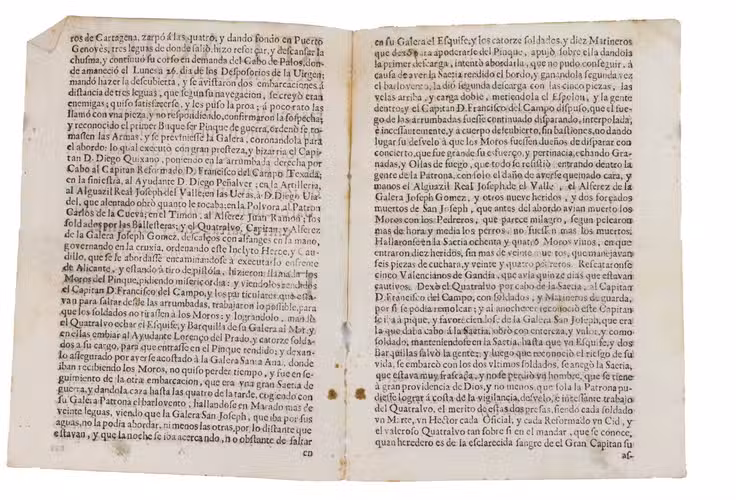 ros de Cartagena, zarpó á las quatro, y dando fondo en Puerto
Genovès, tres leguas de donde salió, hizo reforçar, y descansar la
chusma, y continuò su corso en demanda del Cabo de Palos, don-
de amaneciò el Lunes à 26. dia de los Desposorios de la Uirgen;
mandó hazer la descubierta, y se avistaron dos embarcaciones á
distancia de tres leguas, que segun su navegacion, se creyó eran
enemigas; quiso satisfacerse, y les puso la proa; á poco rato las
llamó con vna pieza, y no respondiendo, confirmaron la sospecha;
y reconocido el primer Buque ser Pinque de guerra, ordenò se to-
massen las Armas, y se previniesse la Galera, coronandola para
el abordo: lo qual executò con gran presteza, y bizarria el Capi-
tan D. Diego Quixano, poniendo en la arrumbada derecha por
Cabo al Capitan Reformado D. Francisco del Campo Texada;
en la siniestra, al Ayudante D. Diego Peñalver; en la Artilleria,
al Alguazil Real Joseph del Valle; en las Ueras, à D. Diego Uia-
del, que alentado obrò quanto le tocaba; en la Polvora, al Patron
Carlos de la Cueva; en el Timòn, al Alferez Juan Ramon; los
soldados por las Ballesteras; y el Quatralvo, Capitan, y Alferez
de la Galera Joseph Gomez, descalços con alfanges en la mano,
governando en la cruxia, ordenando este Inclyto Heroe, y Cau-
dillo, que se le abordasse encaminandose à executarlo enfrente
de Alicante, y estando á tiro de pistola, hizieron llamada los
Moros del Pinque, pidiendo misericordia; y viendolos rendidos
el Capitan D. Francisco del Campo, y los particulares que esta-
van para saltar desde las arrumbadas, trabajaron lo possible, para
que los soldados no tirassen à los Moros; y lograndolo, mandò
el Quatralvo echar el Esquife, y Barquilla de su Galera al Mar, y
en ellas embiar al Ayudante Lorenço del Prado, y catorze solda-
dos a su cargo, para que entrasse en el Pinque rendido; y dexan-
lo asegurado por averse acostado à la Galera Santa Ana, donde
iban recibiendo los Moros, no quiso perder tiempo, y fue en se-
guimiento de la otra embarcacion, que era vna gran Saetia de
guerra, y dandola caza hasta las quatro de la tarde, cogiendo con
su Galera Patrona el barlovento, hallandose en Mar ado mas de
veinte leguas, viendo que la Galera San Joseph, que iba por sus
aguas, no la podia abordar, ni menos las otras, por lo distante que
estavan, y que la noche se iba acercando, no obstante de faltar
en
en su Galera el Esquife, y los catorze soldados, y diez Marineros
que dexò para apoderarse del Pinque, apujò sobre ella dandola
la primer descarga, intentò abordarla, que no pudo conseguir, à
causa de aver la Saetia rendido el bordo, y ganandola segunda vez
el barlovento, la diò segunda descarga con las cinco piezas, las
velas arriba, y carga doble, metiendola el Espolon, y la gente
dentro; y el Capitan D. Francisco del Campo dispuso, que el fue-
go de las arrumbadas fuesse continuado disparando, interpolada,
è incessantemente, y a cuerpo descubierto, sin bastiones, no dando
lugar su desvelo à que los Moros fuessen dueños de disparar con
concierto, que fue grande su esfuerço, y pertinacia, echando Gra-
nadas, y Ollas de fuego, que todo se resistiò, entrando dentro la
gente de la Patrona, con solo el daño de averse quemado cara, y
manos el Alguazil Real Joseph de el Valle, el Alferez de la
Galera Joseph Gomez, y otros nueve heridos, y dos forçados
muertos de San Joseph, que antes del abordo avian muerto los
Moros con los Pedreros, que parece milagro, segun pelearon
mas de hora, y media los perros, no fuessen mas los muertos.
Hallaronse en la Saetia ochenta y quatro Moros vivos, en que
entraron diez heridos, sin mas de veinte muertos, que manejavan
seis piezas de cuchara, y veinte y quatro pedreros. Rescataronse
cinco Valencianos de Gandia, que avia quinze dias que estavan
cautivos. Dexò el Quatralvo por cabo de la Saetia, al Capitan
D. Francisco del Campo, con soldados, y Marineros de guarda,
por si se podia remolcar; y al anochecer reconociò este Capitan
se iba a pique, y favoreciendose de la Galera San Joseph, que era
la que daba cabo à la Saetia, obrò con entereza, y valor, y como
soldado, manteniendose en la Saetia, hasta que vn Esquife, y dos
Barquillas salvò la gente; y luego que reconociò el riesgo de su
vida, se embarcò con los dos vltimos soldados, se anegò la Saetia,
que estava muy frasçaga, y no se perdiò vn hombre, que se tiene
à gran providencia de Dios, y no menos, que sola la Patrona pu-
diesse lograr à costa de la vigilancia, desvelo, è intessante trabajo
del Quatralvo, el merito de estas dos presas, siendo cada soldado
vn Marte, vn Hector cada Oficial, y cada Reformado vn Cid, y
el valeroso Quatralvo tan sobre si en el mandar, que se conoce,
quan heredero es de la esclarecida sangre de el Gran Capitan su
as-